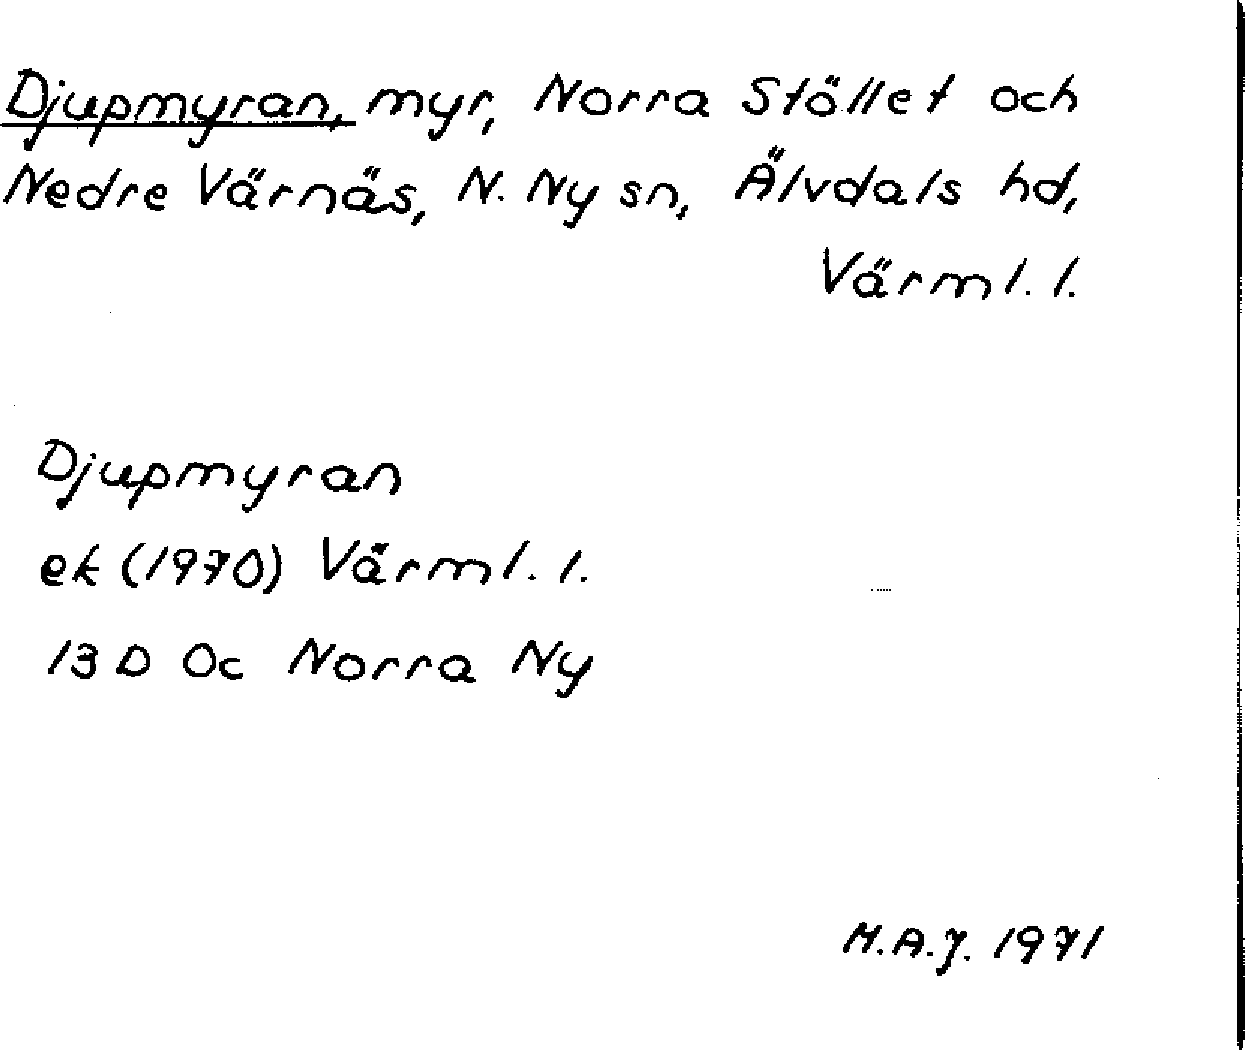 Djupmyran, myr, Norra Stöllet och
Nedre Värnäs, N. Ny sn, Älvdals hd,
Värml. l.
Djupmyran
ek (1970) Värml. l.
13 D 0c Norra Ny
M.A.J. 1971